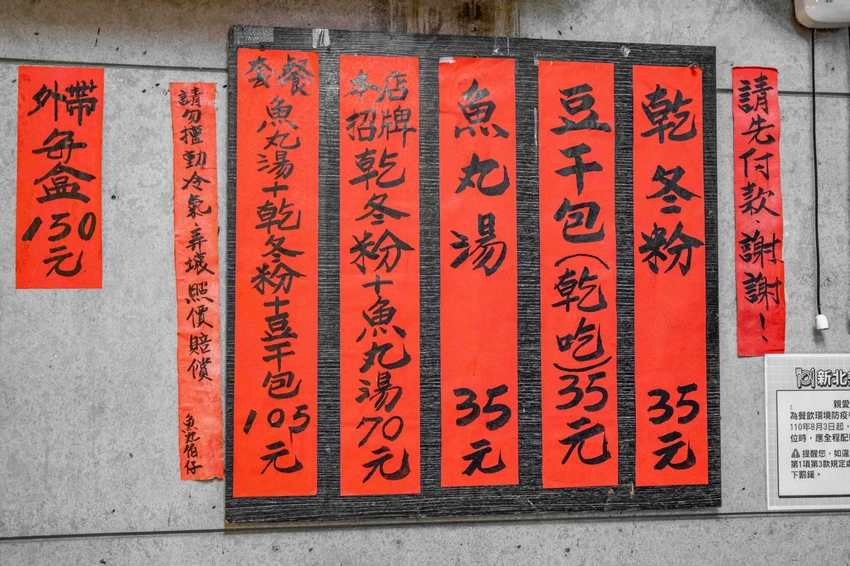 請先付款·謝謝！
乾冬粉 35元
豆干包(乾吃)35元
魚丸湯 35元
本店
招牌
乾冬粉+魚丸湯70元
套餐
魚丸湯+乾冬粉+豆干包105元
請勿擅動冷氣·弄壞照價賠償 魚丸伯仔
外帶
每盒150元
新北
親愛
為餐飲環境防疫
110年8月3日起，
位時，應全程配
提醒您，如違
第1項第3款規定處
下罰鍰。